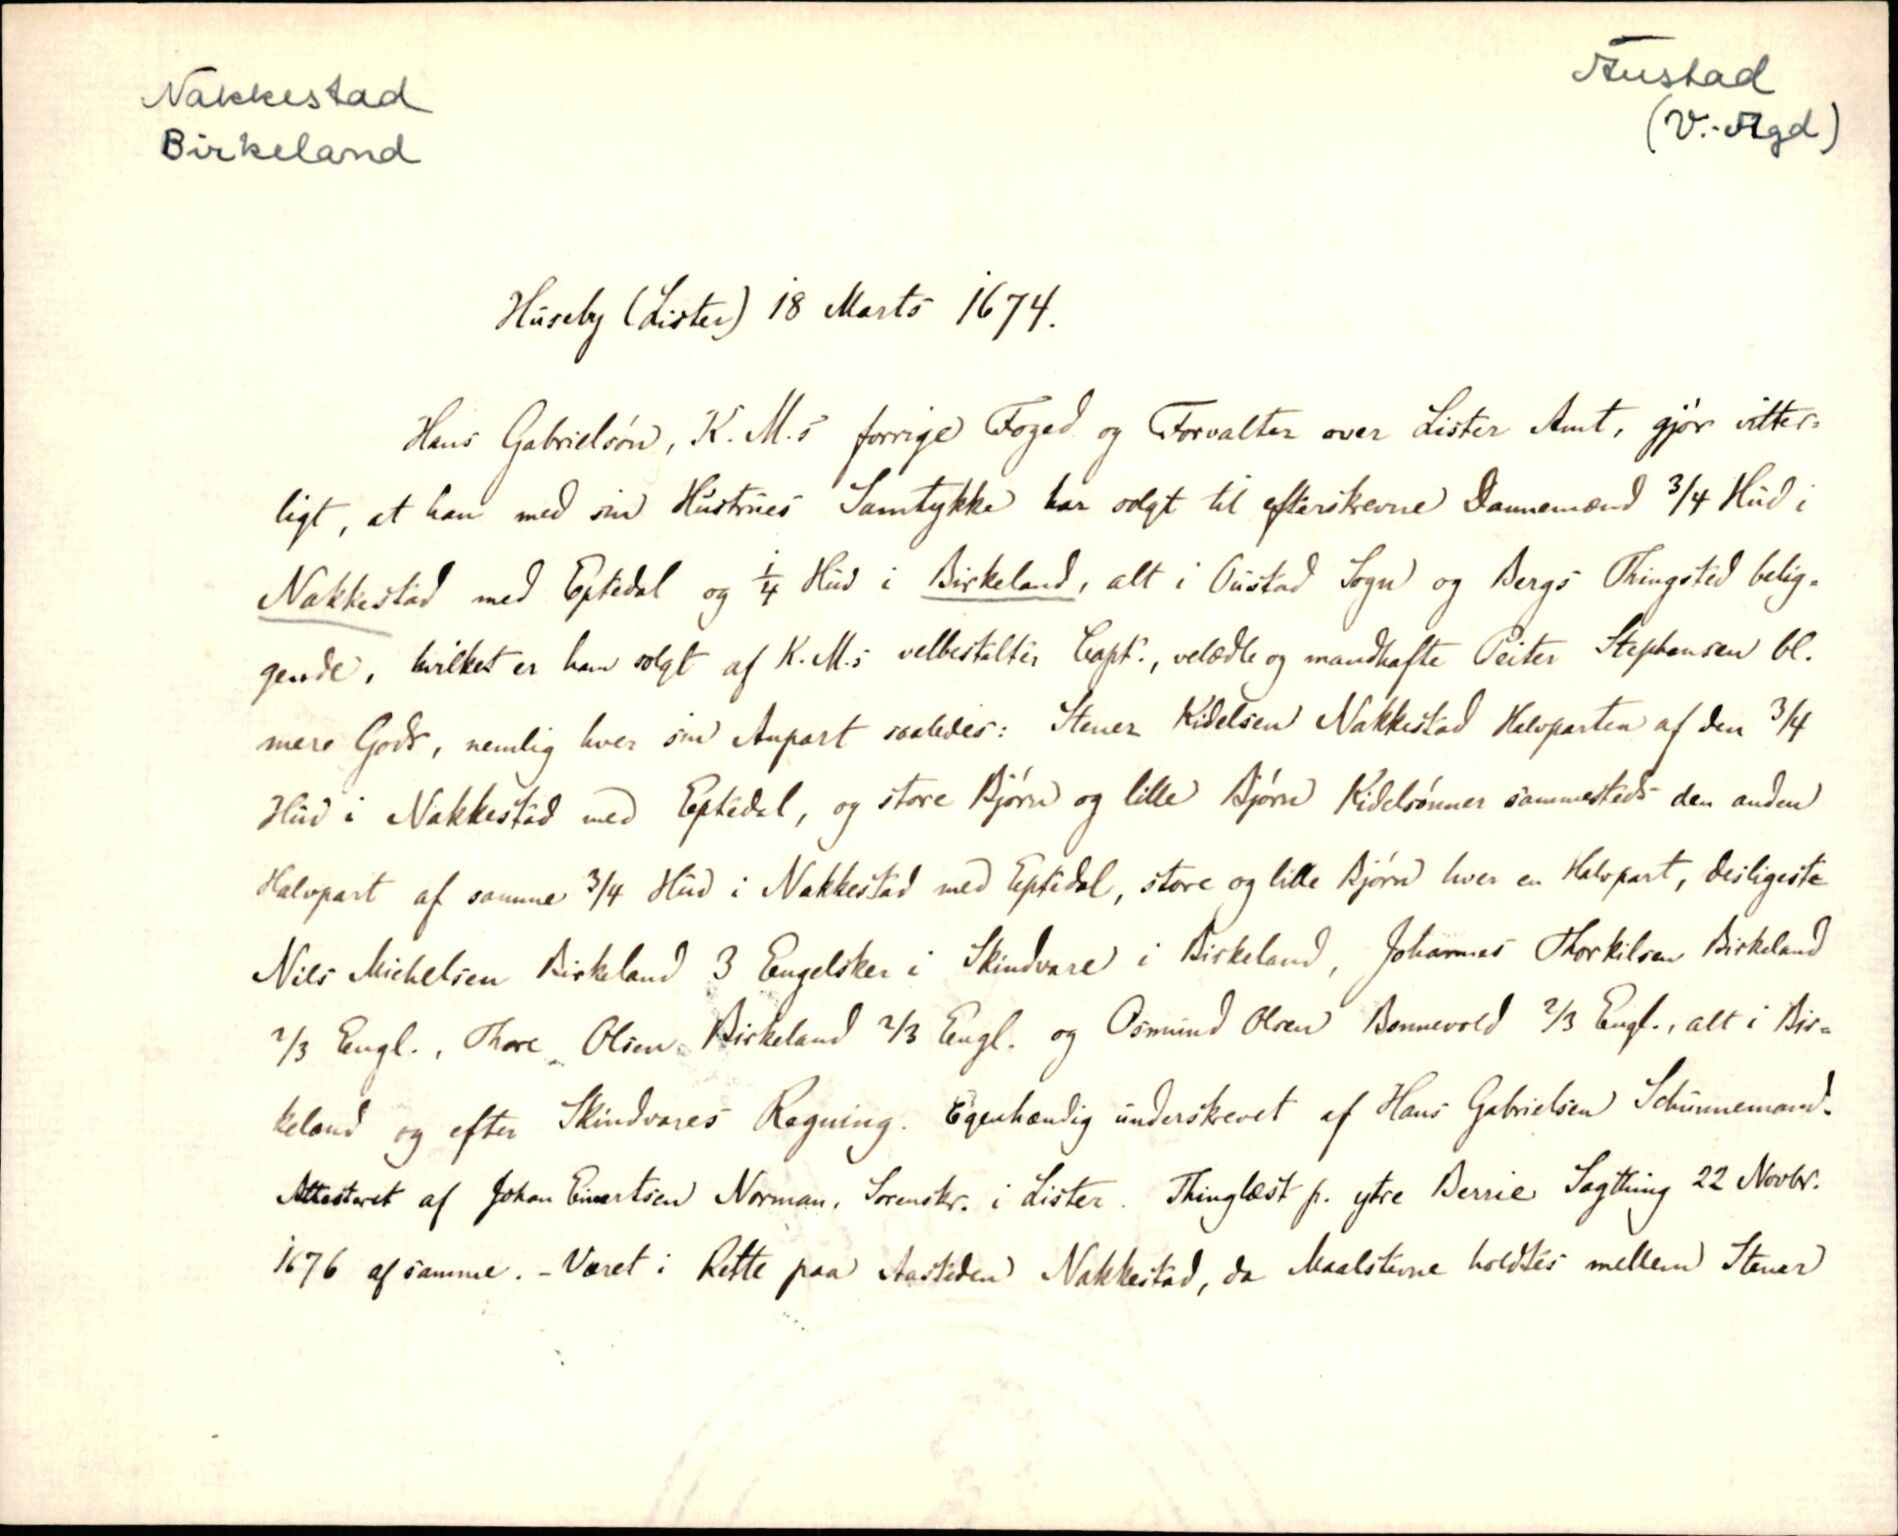 Nakkestad
Birkeland
Austad
(V.-Agd)
Huseby (Lister) 18 Marts 1674.
Hans Gabrielsón, K. M.s forrige Foged og Forvalter over Lister Amt, gjör vitter-
ligt, at han med sin Hustrues Samtykke har solgt til efterskrevne Dannemænd 3/4 Hud i
Nakkestad med Eptedal og 1/4 Hud i Birkeland, alt i Oustad Sogn og Bergs Thingsted belig-
gende, hvilket er ham solgt af K. M.s velbestalter Capt., velædle og mandhafte Peiter Stephensen bl.
mere Gods, nemlig hver sin Anpart saaledes: Stener Kidelsen Nakkestad Halvparten af den 3/4
Hud i Nakkestad med Eptedal, og store Bjórn og lille Bjórn Kidelsónner sammesteds den anden
Halvpart af samme 3/4 Hud i Nakkestad med Eptedal, store og lille Bjórn hver en Halvpart, desligeste
Nils Michelsen Birkeland 3 Engelsker i Skindvare i Birkeland, Johannes Thorkilsen Birkeland
2/3 Engl., Thore Olsen Birkeland 2/3 Engl. og Osmund Olsen Bonnevold 2/3 Engl., alt i Bir-
keland og efter Skindvares Regning. Egenhændig underskrevet af Hans Gabrielsen Schunnemand.
Attesteret af Johan Evertsen Norman, Sorenskr. i Lister. Thinglæst p. ytre Berrie Sagthing 22 Novbr.
1676 af samme. - Været i Rette paa Aasteden Nakkestad, da Maalstevne holdtes mellem Stener